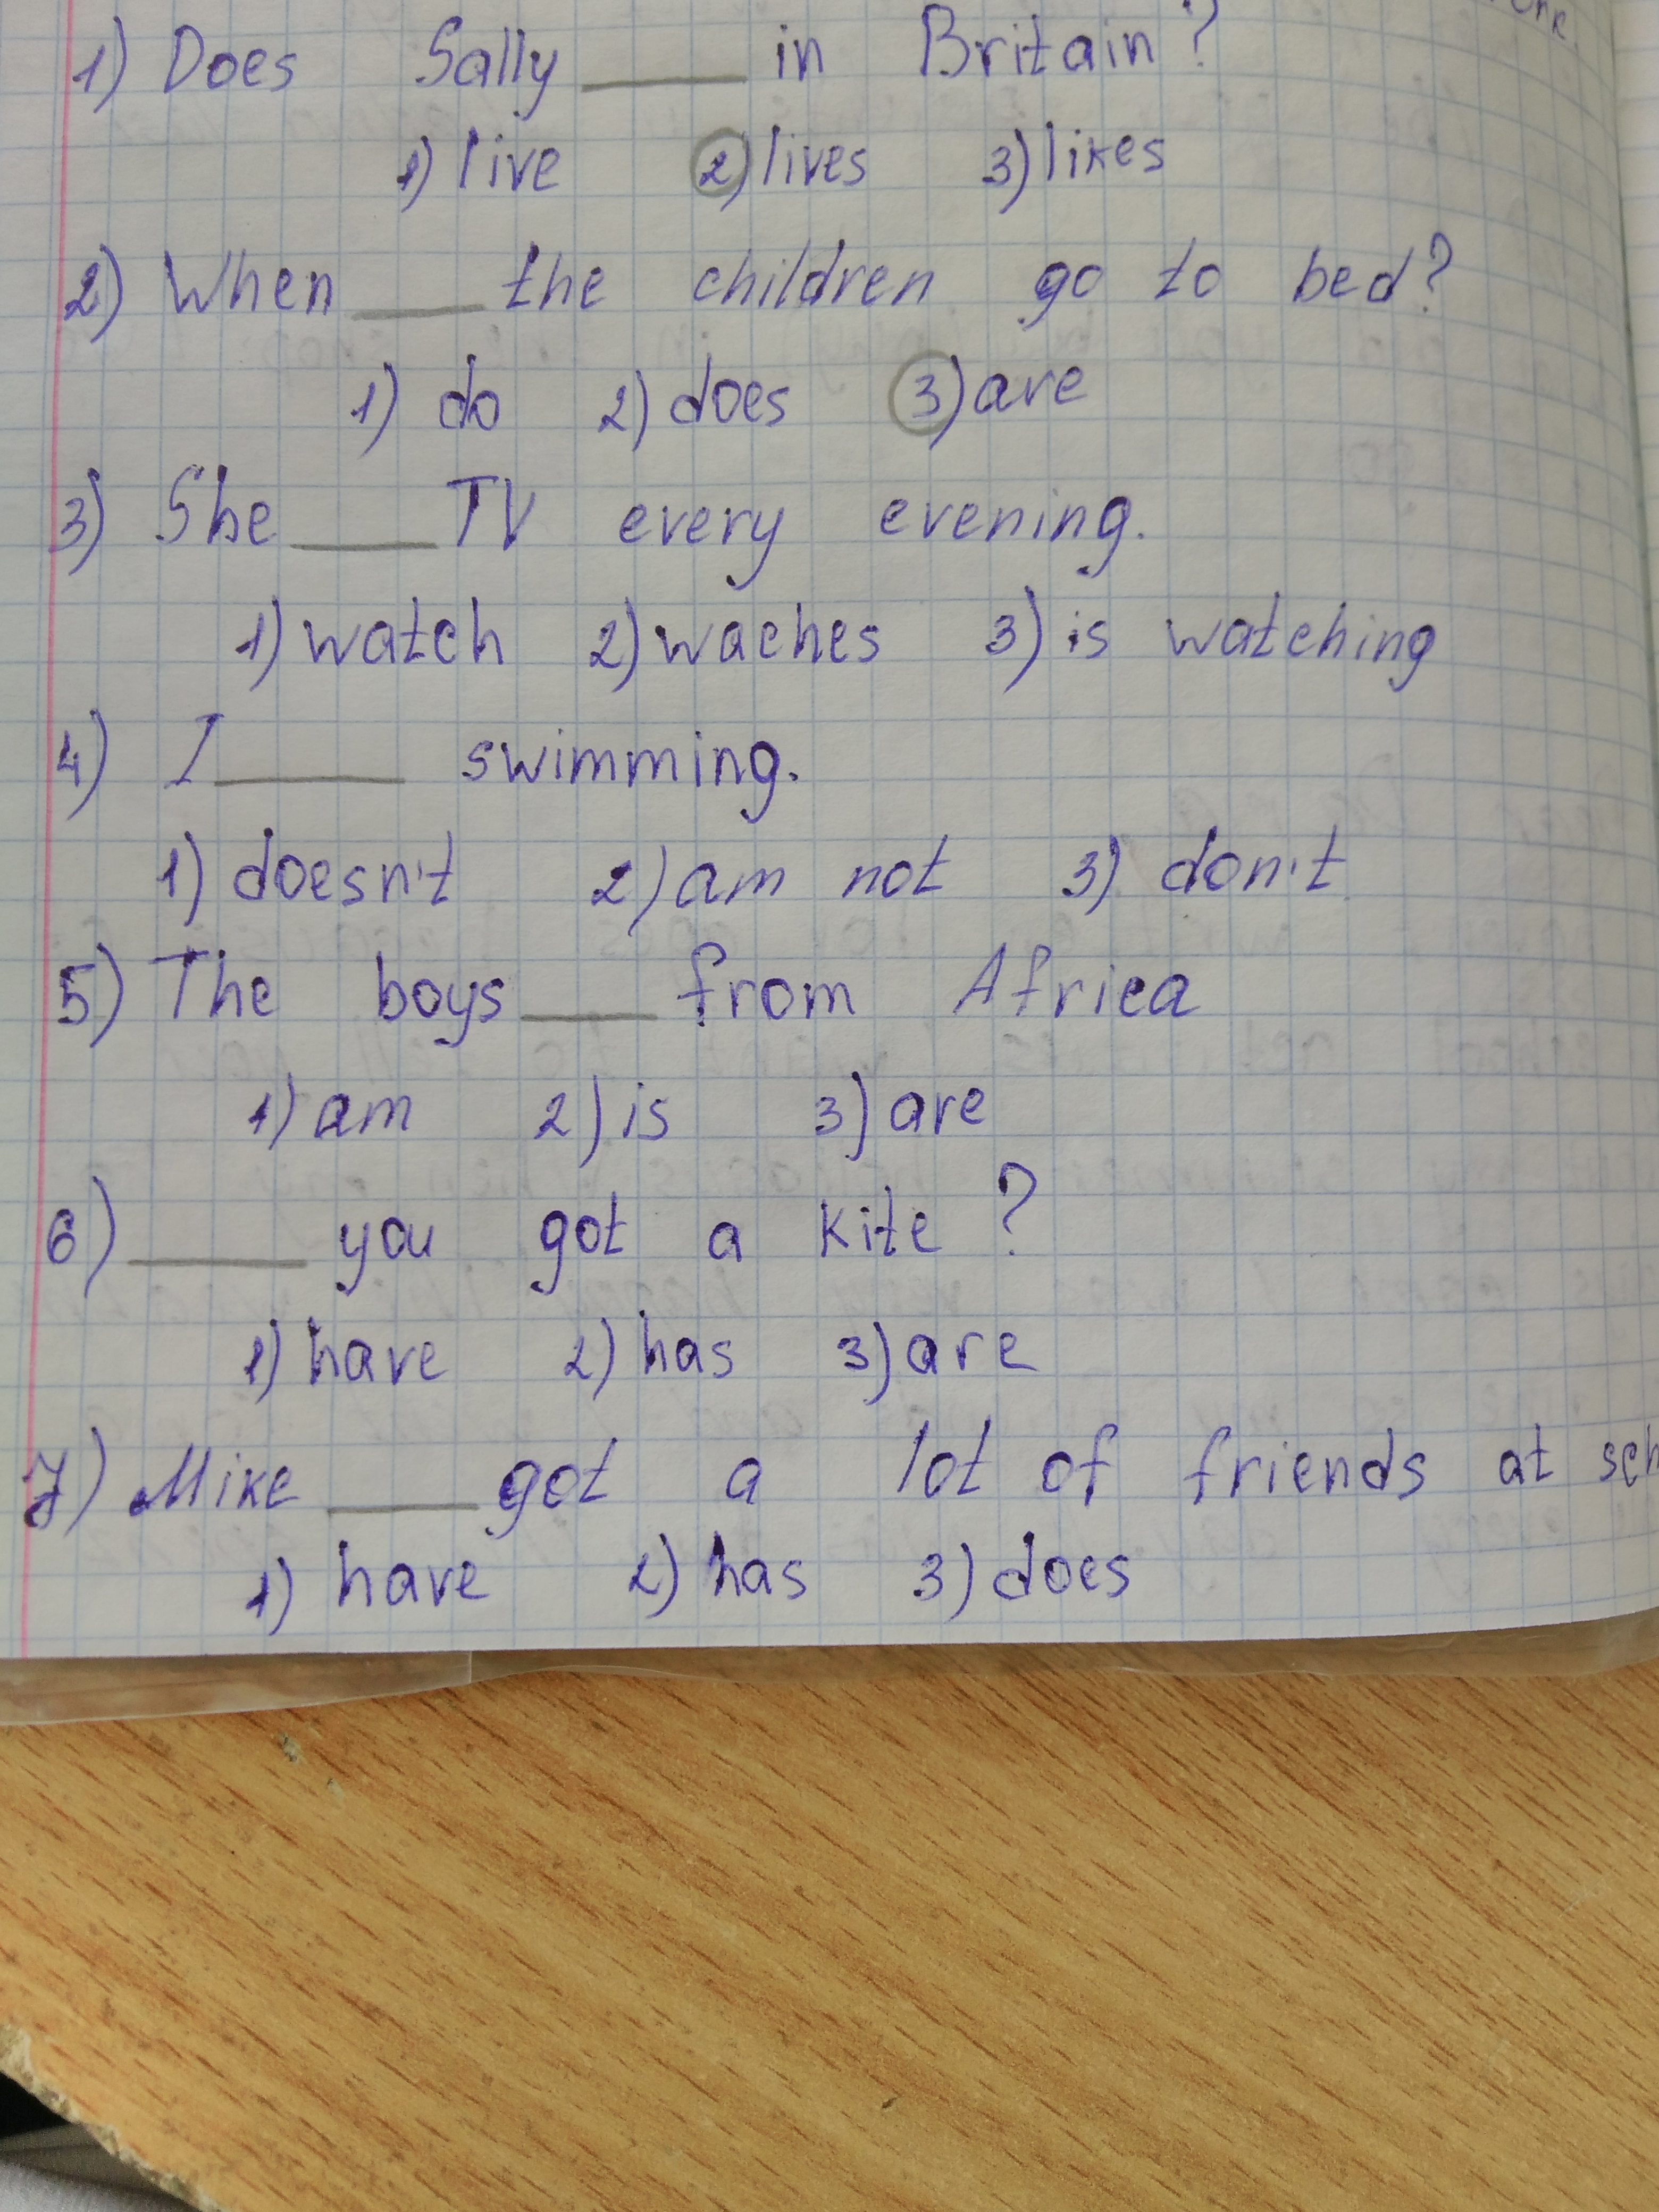 1) Does Sally ____ in Britain?
1) live 2) lives 3) likes
2) When ____ the children go to bed?
1) do 2) does 3) are
3) She ____ TV every evening.
1) watch 2) waches 3) is watching
4) I ____ swimming.
1) doesn't 2) am not 3) don't
5) The boys ____ from Africa
1) am 2) is 3) are
6) ____ you got a kite?
1) have 2) has 3) are
7) Mike ____ got a lot of friends at sch
1) have 2) has 3) does